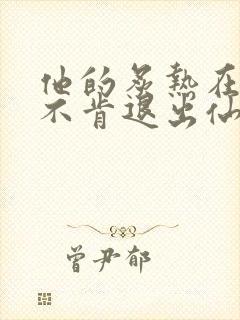 他的炙热在
不肯退出仙
曾尹郁